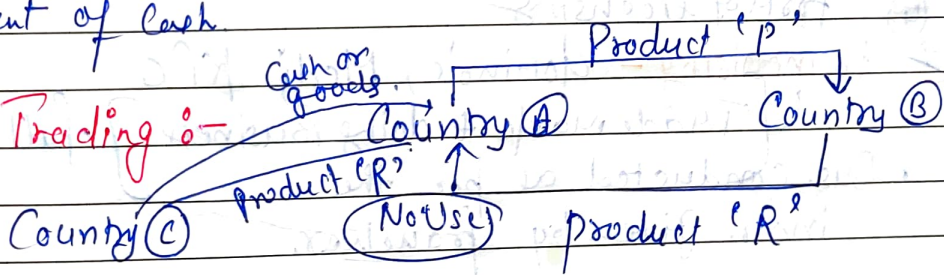 of Cash.
Product 'P'
Cash or
goods.
Trading :-
Country A
Country B
product 'R'
Country C
No Use
product 'R'